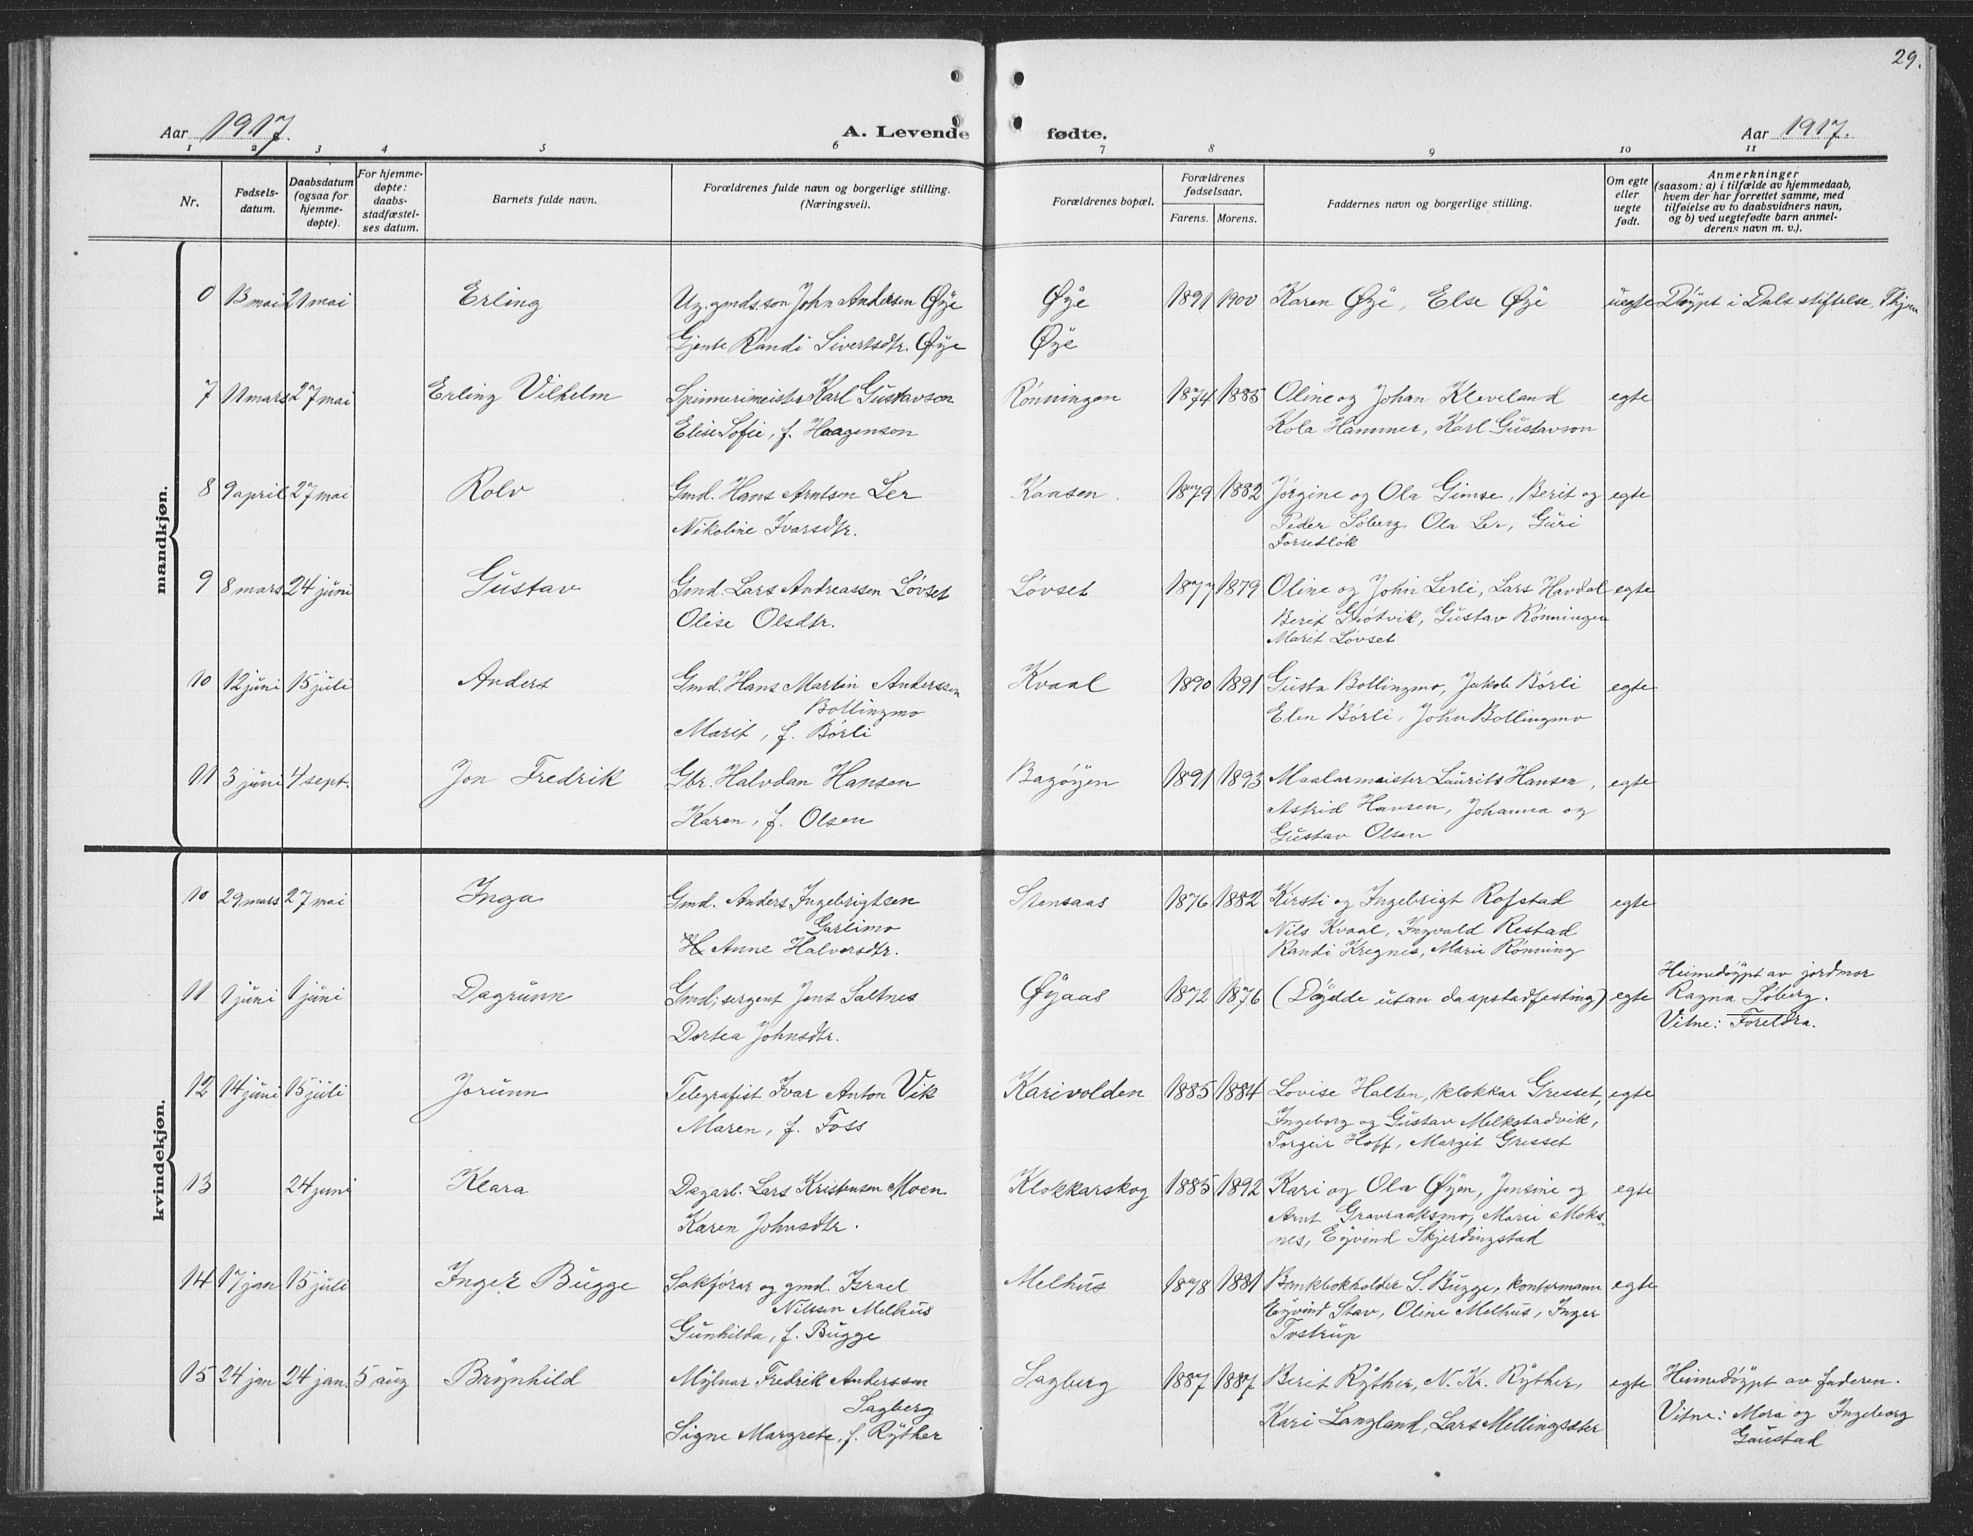 29.
Aar 1917. A. Levende fødte. Aar 1917.
1 2 3 4 5 6 7 8 9 10 11
Nr.
Fødsels-
datum.
Daabsdatum
(ogsaa for
hjemme-
døpte).
For hjemme-
døpte:
daabs-
stadfæstel-
ses datum.
Barnets fulde navn.
Forældrenes fulde navn og borgerlige stilling.
(Næringsvei).
Forældrenes bopæl.
Forældrenes
fødselsaar.
Farens. Morens.
Faddernes navn og borgerlige stilling.
Om egte
eller
uegte
født.
Anmerkninger
(saasom: a) i tilfælde av hjemmedaab,
hvem der har forrettet samme, med
tilføielse av to daabsvidners navn,
og b) ved uegtefødte barn anmel-
derens navn m. v.).
mandkjøn.
0 13 mai 21 mai Erling Ug. gmds.son John Andersen Øye Øye 1891 1900 Karen Øye, Else Øye uegte Døypt i Dals stiftelse, Thjem
Gjente Randi Sivertsdtr. Øye Øye
7 11 mars 27 mai Erling Vilhelm Spinnerimeister Karl Gustavson Rønningen 1874 1885 Oline og Johan Kleveland egte
Elise Sofie, f. Haagenson Kola Hammer, Karl Gustavson
8 9 april 27 mai Rolv Gmd. Hans Arntsen Ler Kaasen. 1879 1882 Jørgine og Ola Gimse, Berit og egte
Nikoline Ivarsdtr. Peder Søberg, Ola Ler, Guri
Forsetløk
9 8 mars 24 juni Gustav Gmd. Lars Andreassen Løvset Løvset 1877 1879 Oline og John Lerli, Lars Havdal egte
Olise Olsdtr. Berit Grøtvik, Gustav Rønningen
Marit Løvset
10 12 juni 15 juli Anders Gmd. Hans Martin Anderssen Kvaal 1890 1891 Gusta Bollingmo, Jakob Børli egte
Bollingmo
Marit, f. Børli Elen Børli, John Bollingmo
11 3 juni 4 sept. Jon Fredrik Gbr. Halvdan Hansen Bagøyen 1891 1893 Maalarmeister Laurits Hansen, egte
Karen, f. Olsen Astrid Hansen, Johanna og
Gustav Olsen
kvindekjøn.
10 29 mars 27 mai Inga Gmd. Anders Ingebrigtsen Stensaas 1876 1882 Kirsti og Ingebrigt Rofstad egte
Garlimo Nils Kvaal, Ingvald Restad
H Anne Halvorsdtr. Randi Kregnes, Marie Rønning
11 1 juni 1 juni Dagrunn Gmd; sergent Jens Saltnes Øyaas 1872 1876 (Døydde utan daapstadfesting) egte Heimedøypt av jordmor
Ragna Søberg.
Dortea Johnsdtr. Vitne: Foreldra.
12 14 juni 15 juli Jorunn Telegrafist Ivar Anton Vik Karivolden 1885 1884 Lovise Halten, klokkar Gresset, egte
Maren, f. Foss Ingeborg og Gustav Melkstadvik,
Torgeir Hoff, Margit Gresset
13 24 juni Klara Dagarb. Lars Kristensen Moen Klokkarskog 1885 1892 Kari og Ola Øyen, Jensine og egte
Karen Johnsdtr. Arnt Gravraaksmo, Marie Moks-
nes, Eyvind Skjerdingstad
14 17 jan 15 juli Inger Bugge Sakførar og gmd. Israel Melhus 1878 1881 Bankbokholder S. Bugge, kontormann egte
Nilssen Melhus Eyvind Stav, Oline Melhus, Inger
Gunhilda, f. Bugge Tostrup
15 24 jan 24 jan. 5 aug Brynhild Mylnar Fredrik Anderssen Sagberg 1887 1887 Berit Ryther, N. Kr. Ryther, egte Heimedøypt av faderen.
Sagberg
Signe Margrete, f. Ryther Kari Langland, Lars Mellingsæter Vitne: Mora og Ingeborg
Gaustad